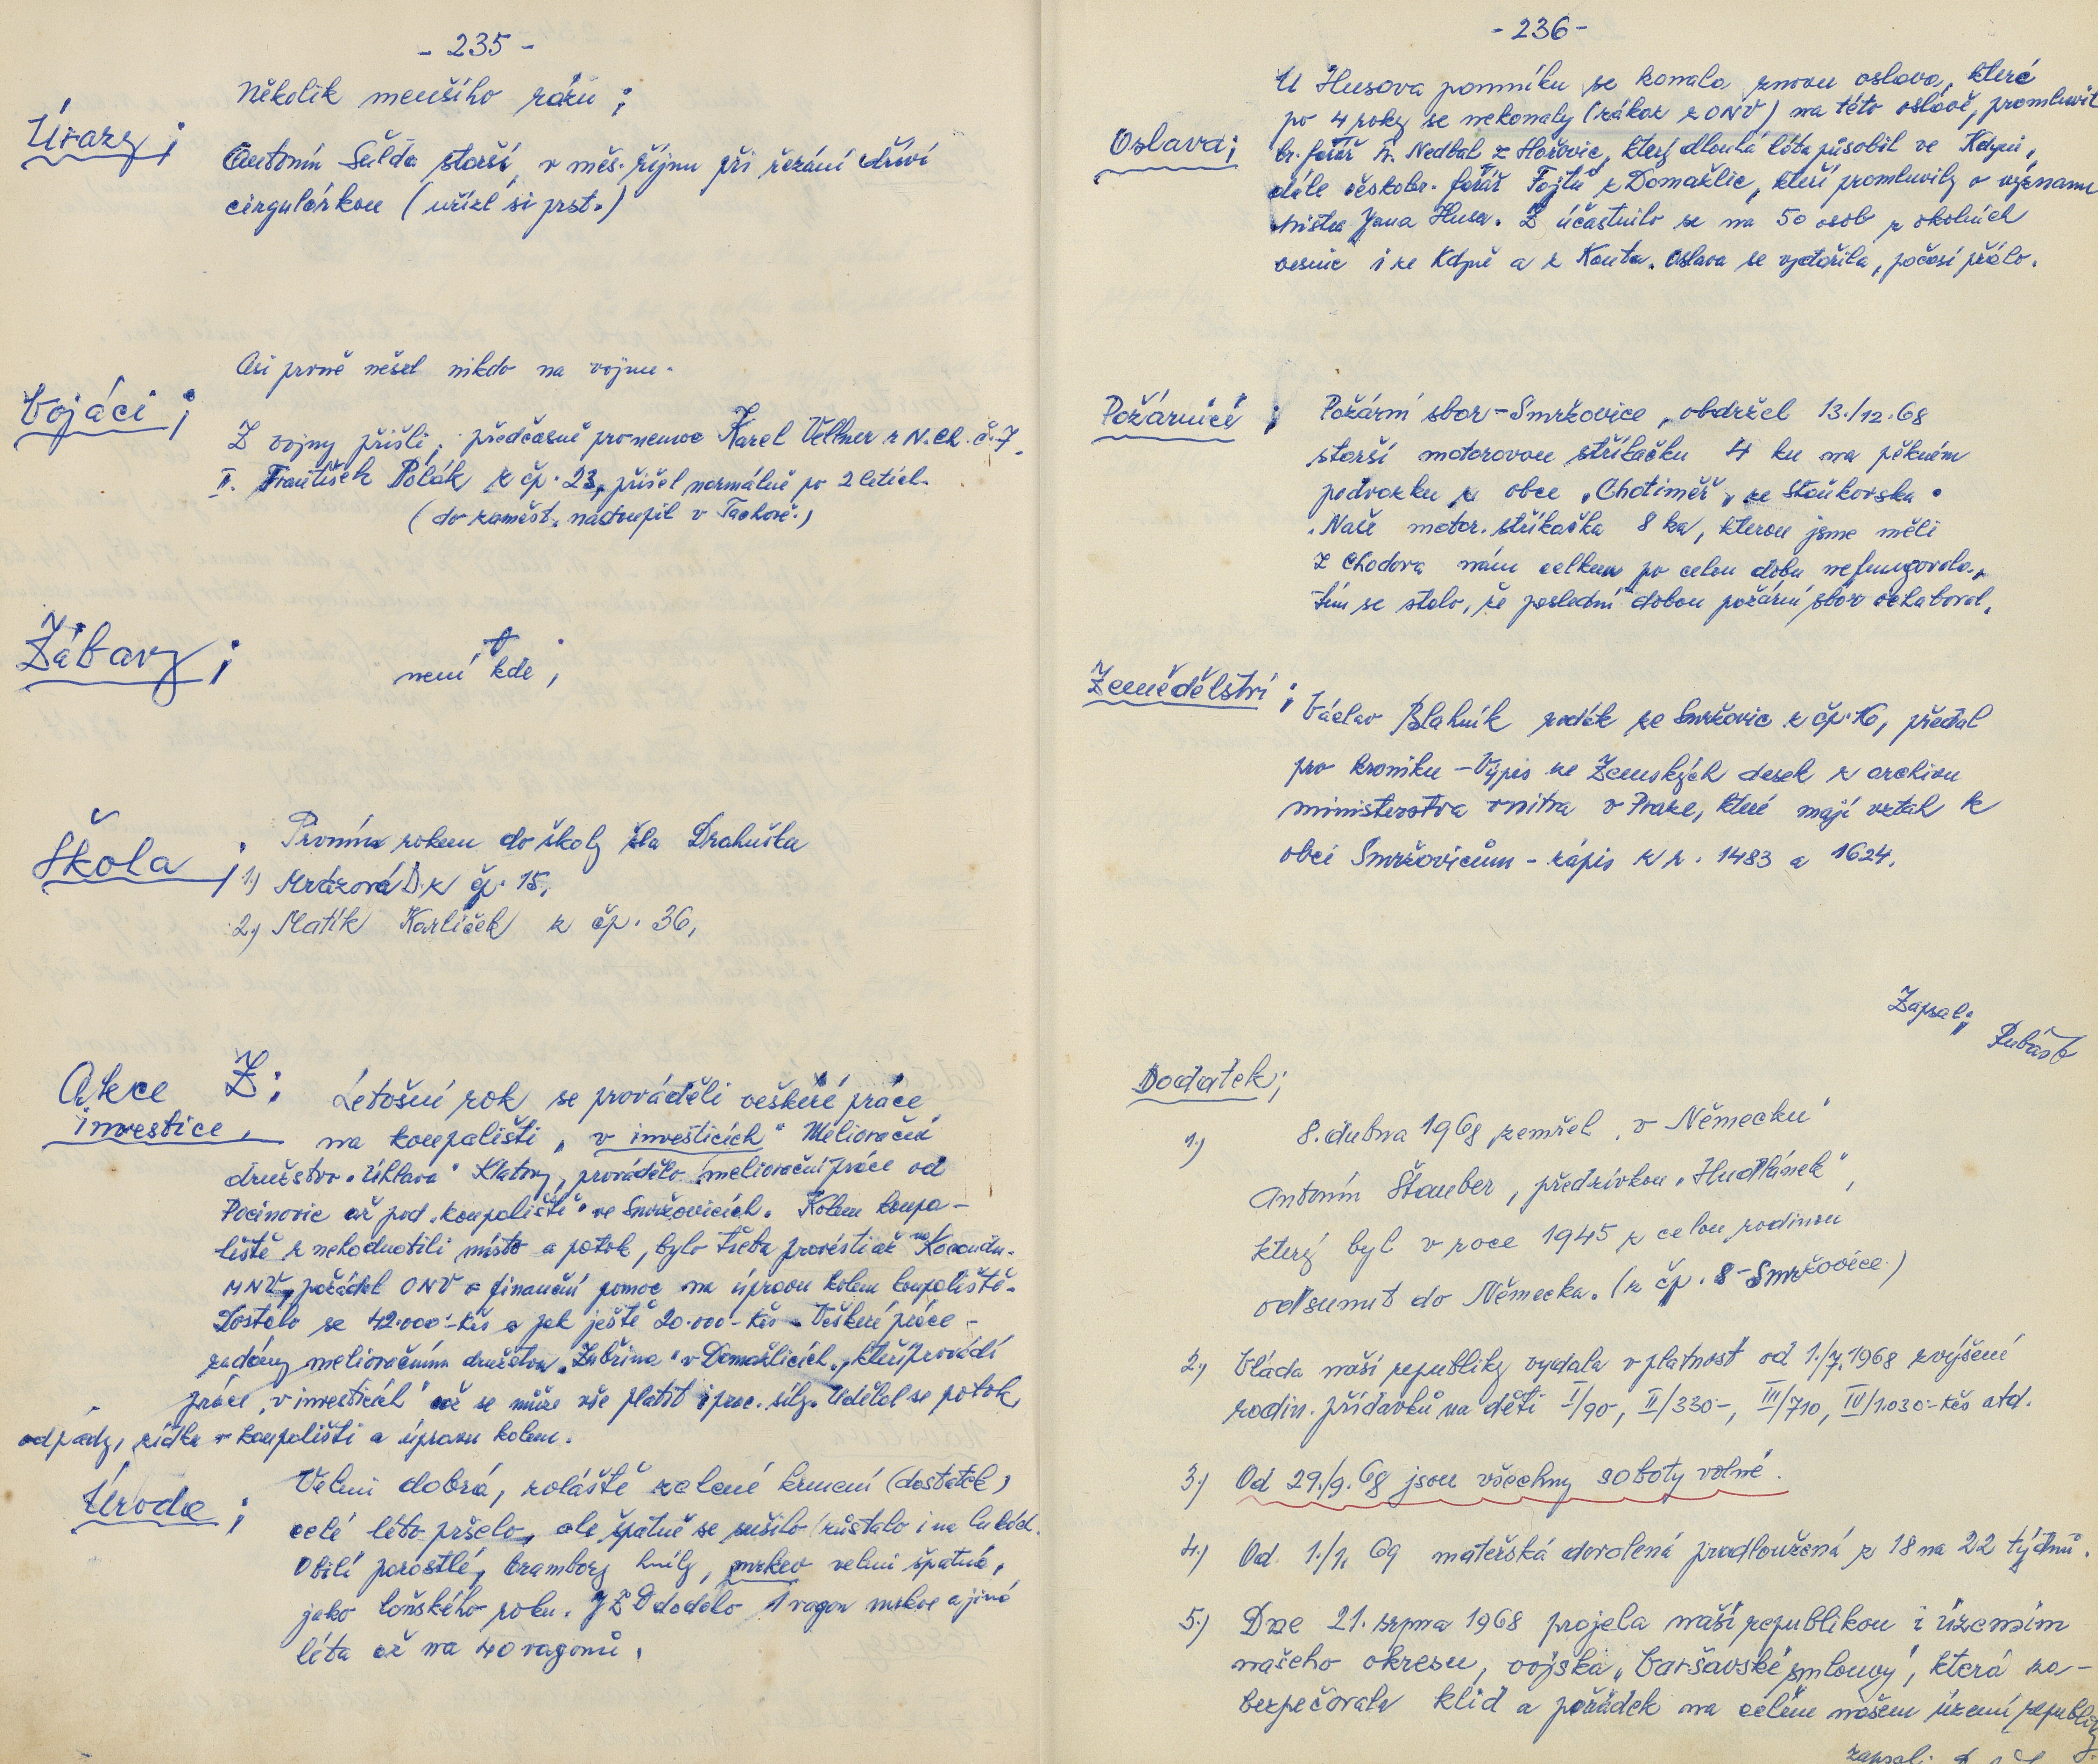 - 235 -
Několik menšího rázu ;
Úrazy ;
Antonín Šulda starší, v měs. říjnu při řezání dříví
cirgulárkou ( uřízl si prst. )
Asi prvně nešel nikdo na vojnu.
Vojáci ;
Z vojny přišli ; předčasně pro nemoc Karel Vellner z N. Ch. č. 7.
II. František Polák z čp. 23, přišel normálně po 2 letích.
( do zaměst. nastoupil v Tachově. )
Zábavy ;
není kde ;
Škola ;
Prvním rokem do školy šla Drahuška
1.) Mrázová D. z čp. 15,
2.) Matík Karlíček z čp. 36,
Akce Z ;
investice,
Letošní rok se prováděli veškéré práce
na koupališti „ v investicích " Meliorační
družstvo „Úhlava" Klatovy, provádělo meliorační práce od
Pocinovic až pod „koupaliště" ve Smržovicích. Kolem koupa-
liště znehodnotili místo a potok, bylo třeba provésti
MNV, požádal ONV o finanční pomoc na úpravu kolem koupaliště.
Dostálo se 42.000.-Kčs a pak ještě 20.000-Kčs - Veškeré práce -
zadány melioračnímu družstvu „Zubřina" v Domažlicích, kteří provádí
práce „v investicích" což se může vše platit i prac. síly. Udělal se potok,
odpady, zídka v koupališti a úpravu kolem.
Úroda ;
Velmi dobrá, zoláště zelené krmení (dostatek)
celé léto pršelo, ale špatně se sušilo (zůstalo i na lukách.
Obilí porostlé, brambory hnily, mrkev velmi špatná,
jako loňského roku. JZD dodalo 1 vagon mrkve a jiná
léta až na 40 vagonů.
- 236 -
Oslava ;
U Husova pomníku se konala znovu oslava, které
po 4 roky se nekonaly (zákaz z ONV) na této oslavě, promluvil
br. farář Nedbal z Hořovic, který dlouhá léta působil ve Kdyni,
dále českobr. farář Fojtů z Domažlic, kteří promluvily o významu
mistra Jana Husa. Z účastnilo se na 50 osob z okolních
vesnic i ze Kdyně a z Kouta. Oslava se vydařila, počasí přálo.
Požárníci ;
Požární sbor - Smržovice, obdržel 13./12.68
starší motorovou stříkačku 4 ku na pěkném
podvozku z obce „Chotiměř„ ze Staňkovska.
Naše motor. stříkačka 8 ka, kterou jsme měli
z Chodova nám celkem po celou dobu nefungovala,
tím se stalo, že poslední dobou požární sbor ochaboval.
Zemědělství ;
Václav Blahník rodák ze Smržovic z čp. 16, předal
pro kroniku - Výpis ze Zemských desek z archivu
ministerstva vnitra v Praze, které mají vztah k
obci Smržovicům - zápis z r. 1483 a 1624.
Zapsal ;
Dodatek ;
1.) 8. dubna 1968 zemřel „v Německu"
Antonín Štauber, předzívkou „Hudlánek",
který byl v roce 1945 z celou rodinou
odsunut do Německa. (z čp. 8 - Smržovice.)
2.) Vláda naší republiky vydala v platnost od 1./7.1968 zvýšení
rodin. přídavků na děti I/90-, II/330-, III/710, IV/1.030.- Kčs atd.
3.) Od 29./9. 68 jsou všechny soboty volné.
4.) Od. 1./1. 69 mateřská dovolená prodloužená z 18 na 22 týdnů.
5.) Dne 21. srpna 1968 projela naší republikou i územím
našeho okresu, vojska „Varšavské smlouvy", která za-
bezpečovala klid a pořádek na celém našem území republiky
zapsal: